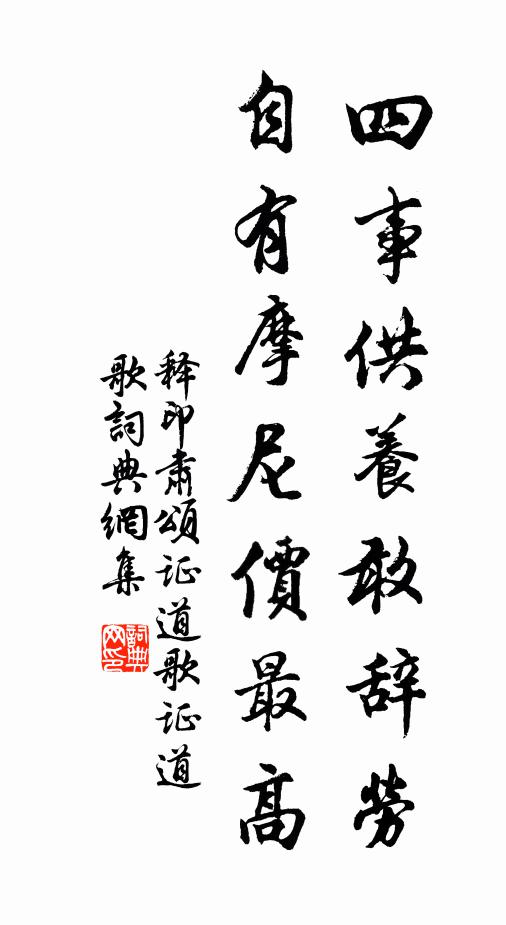 四事供養敢辞勞
自有摩尼價最高
释印肃頌证道歌证道
歌詞典網集
詞典网印